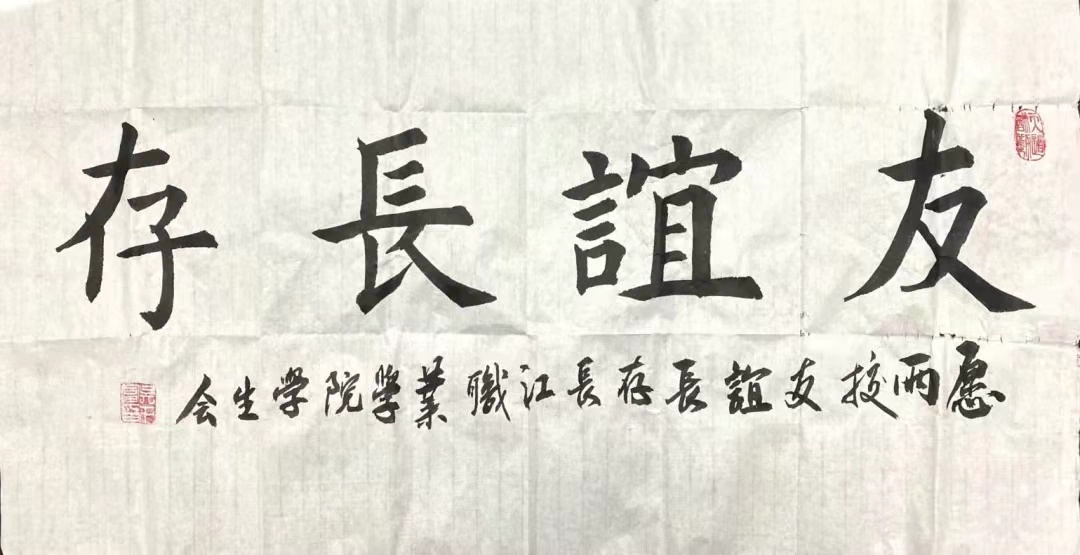 友誼長存
愿兩校友誼長存長江職業學院學生会